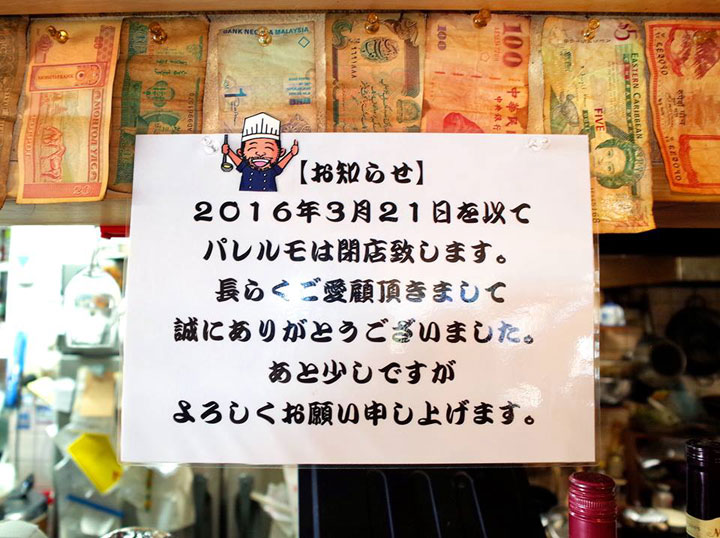 BANK NEGARA MALAYSIA
1
100
$5
EASTERN CARIBBEAN
FIVE
【お知らせ】
2016年3月21日を以て
パレルモは閉店致します。
長らくご愛顧頂きまして
誠にありがとうございました。
あと少しですが
よろしくお願い申し上げます。